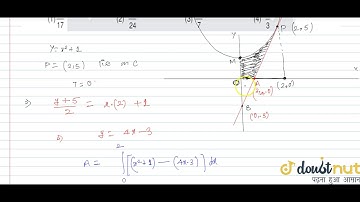 (1) 1/17 (2) /24 (3) (4) 1/3
y = x² + 1
P = (2,5) lie on C
T = 0
⇒ y+5/2 = x.(2) + 1
⇒ y = 4x - 3
A = ∫₀² [(x²+1) - (4x-3)] dx
y
P (2,5)
M
O
A
(2,0)
x
B
(0,-3)
doubtnut
पढ़ना हुआ आसान